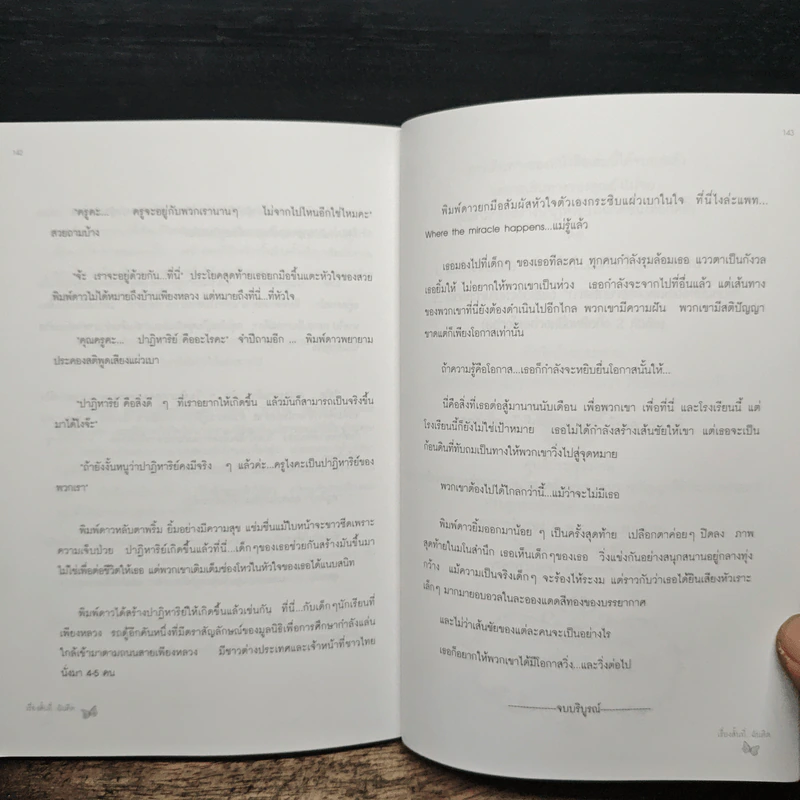 142
"ครูคะ... ครูจะอยู่กับพวกเรานานๆ ไม่จากไปไหนอีกใช่ไหมคะ"
สวยถามบ้าง
"จ้ะ เราจะอยู่ด้วยกัน...ที่นี่" ประโยคสุดท้ายเธอยกมือขึ้นแตะหัวใจของสวย
พิมพ์ดาวไม่ได้หมายถึงบ้านเพียงหลวง แต่หมายถึงที่นี่...ที่หัวใจ
"คุณครูคะ... ปาฏิหาริย์ คืออะไรคะ" จำปีถามอีก ... พิมพ์ดาวพยายาม
ประคองสติพูดเสียงแผ่วเบา
"ปาฏิหาริย์ คือสิ่งดี ๆ ที่เราอยากให้เกิดขึ้น แล้วมันก็สามารถเป็นจริงขึ้น
มาได้ไงจ๊ะ"
"ถ้ายังงั้นหนูว่าปาฏิหาริย์คงมีจริง ๆ แล้วค่ะ...ครูไงคะเป็นปาฏิหาริย์ของ
พวกเรา"
พิมพ์ดาวหลับตาพริ้ม ยิ้มอย่างมีความสุข แช่มชื่นแม้ใบหน้าจะขาวซีดเพราะ
ความเจ็บป่วย ปาฏิหาริย์เกิดขึ้นแล้วที่นี่...เด็กๆของเธอช่วยกันสร้างมันขึ้นมา
ไม่ใช่เพื่อต่อชีวิตให้เธอ แต่พวกเขาเติมเต็มช่องโหว่ในหัวใจของเธอได้แนบสนิท
พิมพ์ดาวได้สร้างปาฏิหาริย์ให้เกิดขึ้นแล้วเช่นกัน ที่นี่...กับเด็กๆนักเรียนที่
เพียงหลวง รถตู้อีกคันหนึ่งที่มีตราสัญลักษณ์ของมูลนิธิเพื่อการศึกษากำลังแล่น
ใกล้เข้ามาตามถนนสายเพียงหลวง มีชาวต่างประเทศและเจ้าหน้าที่ชาวไทย
นั่งมา 4-5 คน
143
พิมพ์ดาวยกมือสัมผัสหัวใจตัวเองกระซิบแผ่วเบาในใจ ที่นี่ไงล่ะแพท...
Where the miracle happens...แม่รู้แล้ว
เธอมองไปที่เด็กๆ ของเธอทีละคน ทุกคนกำลังรุมล้อมเธอ แววตาเป็นกังวล
เธอยิ้มให้ ไม่อยากให้พวกเขาเป็นห่วง เธอกำลังจะจากไปที่อื่นแล้ว แต่เส้นทาง
ของพวกเขาที่นี่ยังต้องดำเนินไปอีกไกล พวกเขามีความฝัน พวกเขามีสติปัญญา
ขาดแต่ก็เพียงโอกาสเท่านั้น
ถ้าความรู้คือโอกาส...เธอก็กำลังจะหยิบยื่นโอกาสนั้นให้...
นี่คือสิ่งที่เธอต่อสู้มานานนับเดือน เพื่อพวกเขา เพื่อที่นี่ และโรงเรียนนี้ แต่
โรงเรียนนี้ก็ยังไม่ใช่เป้าหมาย เธอไม่ได้กำลังสร้างเส้นชัยให้เขา แต่เธอจะเป็น
ก้อนดินที่ทับถมเป็นทางให้พวกเขาวิ่งไปสู่จุดหมาย
พวกเขาต้องไปได้ไกลกว่านี้...แม้ว่าจะไม่มีเธอ
พิมพ์ดาวยิ้มออกมาน้อย ๆ เป็นครั้งสุดท้าย เปลือกตาค่อยๆ ปิดลง ภาพ
สุดท้ายในมโนสำนึก เธอเห็นเด็กๆของเธอ วิ่งแข่งกันอย่างสนุกสนานอยู่กลางทุ่ง
กว้าง แม้ความเป็นจริงเด็กๆ จะร้องไห้ระงม แต่ราวกับว่าเธอได้ยินเสียงหัวเราะ
เด็กๆ มากมายอบอวลในละอองแดดสีทองของบรรยากาศ
และไม่ว่าเส้นชัยของแต่ละคนจะเป็นอย่างไร
เธอก็อยากให้พวกเขาได้มีโอกาสวิ่ง...และวิ่งต่อไป
จบบริบูรณ์